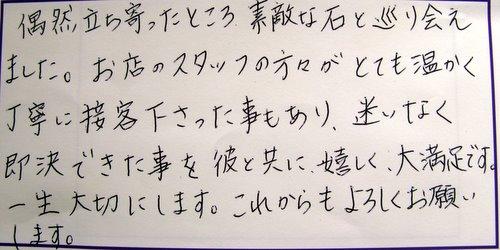 偶然立ち寄ったところ 素敵な石と巡り会え
ました。お店のスタッフの方々が とても温かく
丁寧に接客下さった事もあり、迷いなく
即決できた事を 彼と共に、嬉しく、大満足です。
一生大切にします。これからもよろしくお願い
します。